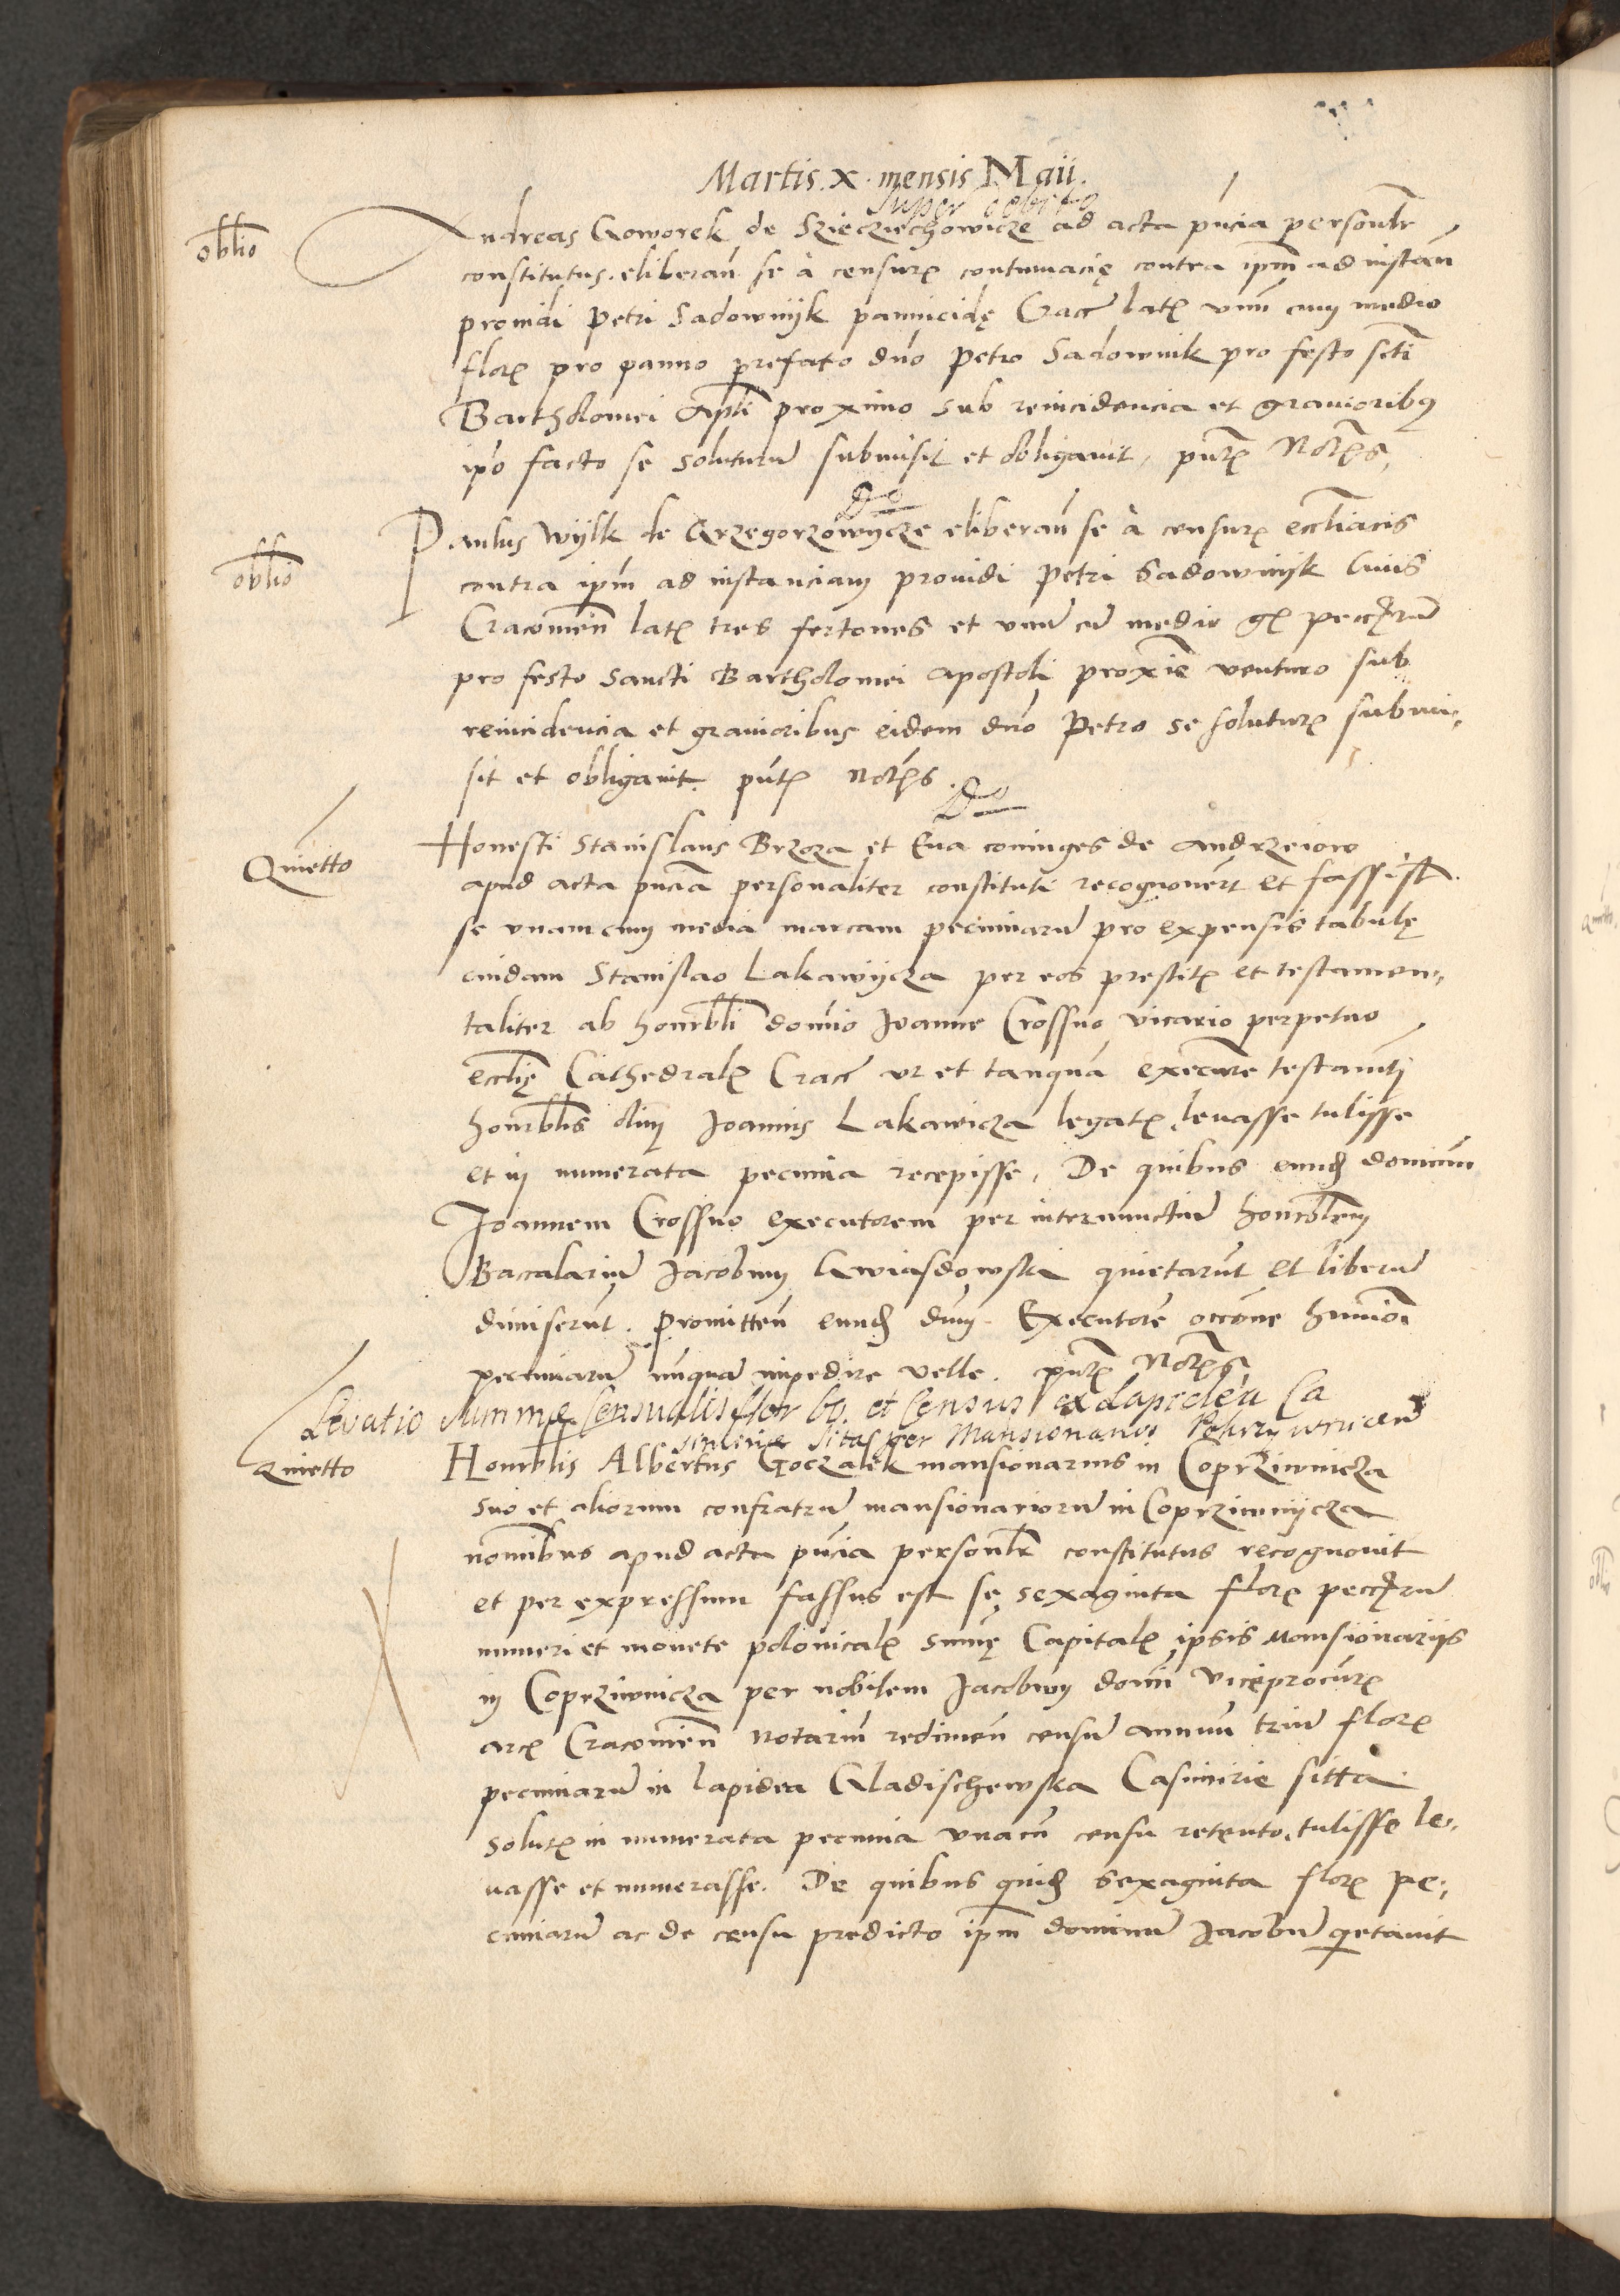 Martis. x. mensis Maii.
super debito
oblio
Andreas Goworek de Szieciechowicze ad acta pñcia personlr
constitutus. eliberań se à censur contumacię contra ipm ad instań
prouidi Petri Sadownijk pannicidę Crac lat vnu cum medio
flor pro panno prefato dńo Petro Sadownik pro festo scti
Bartholomei Apli proximo sub reincidencia et grauioribus
ipo facto se soluturu submisit et obligauit, pñt Notrs
do
oblio
Paulus Wylk de Grzegorzowycze eliberań se à censur eccliacis
contra ipm ad instanciam prouidi Petri Sadownijk Ciuis
Cracouien lat tres fertones et vnu cu medio gr peccaru
pro festo Sancti Bartholomei Apostoli proxie venturo sub
reincidencia et grauioribus eidem dno Petro se solutur submi-
sit et obligauit. pñt Notrs.
do
Quietto
Honesti Stanislaus Brzoza et Eua coniuges de Andrzeiow
apud acta pncia personaliter constituti recognouert et fassi st
se vnam cum media marcam pecuniaru pro expensis tabulę
cuidam Stanislao Lakawijcza per eos prestit et testamen-
taliter ab honrbli domio Ioanne Crossno vicario perpetuo
ecclię Cathedral Crac vt et tanqua executore testamti
honrblis olim Ioannis Lakawicza legat, leuasse tulisse
et in numerata pecunia recepisse. De quibus eund dominum
Ioannem Crossno executorem per internunctiu honrblem
Baccalariu Iacobum Gwiasdowska quietarut et liberu
dimiserut. Promitten eund dnm Executore occone huiusmoi
pecuniaru nuqua impedire velle. pñt Notrs
Levatio summæ censualis flor 60. et census ex Lapidea Ca
simiriæ sitas per Mansionarios
Quietto
Honrblis Albertus Goczalek mansionarius in Coprziwnicza
suo et aliorum confratru mansionarioru in Coprziwnijcza
nomibus apud acta pñcia personlr constitutus recognouit
et per expressum fassus est se sexaginta flor peccaru
numeri et monete polonical summę Capital ipsis Mansionarijs
in Coprziwnicza per nobilem Iacobum domi viceprocur
arc Cracouien notariu redimen censu annuu triu flor
pecuniaru in lapidea Gladischewska Casimirie sitta
solut in numerata pecunia vnacu censu retento, tulisse le-
uasse et numerasse. De quibus quid sexaginta flor pe-
cuniaru ac de censu predicto ipm dominu Iacobu qetauit